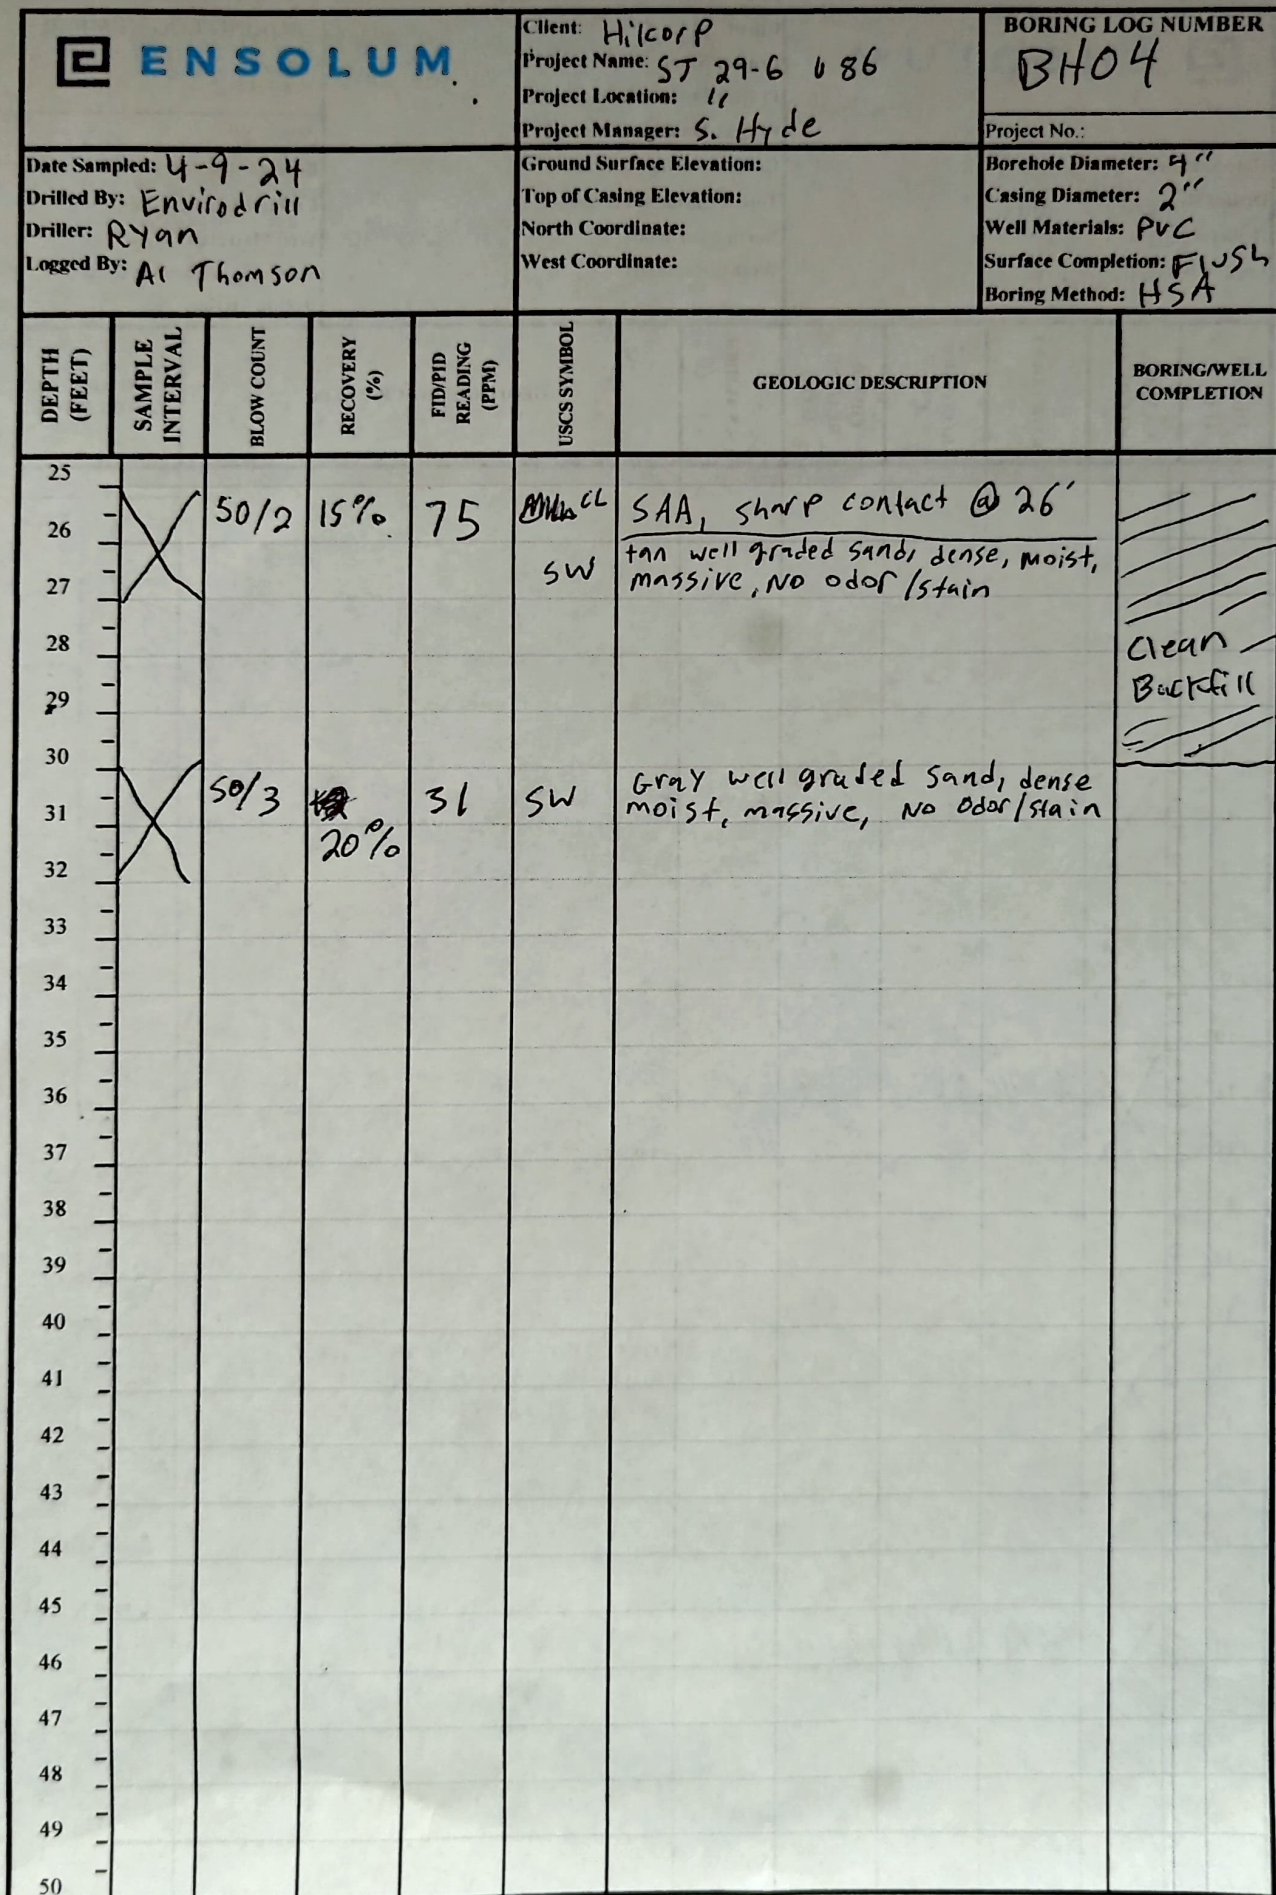 ENSOLUM
Client: Hilcorp
Project Name: SJ 29-6 U 86
Project Location: "
Project Manager: S. Hyde
BORING LOG NUMBER
BH04
Project No.:
Date Sampled: 4-9-24
Drilled By: Envirodrill
Driller: Ryan
Logged By: Al Thomson
Ground Surface Elevation:
Top of Casing Elevation:
North Coordinate:
West Coordinate:
Borehole Diameter: 4"
Casing Diameter: 2"
Well Materials: PVC
Surface Completion: Flush
Boring Method: HSA
DEPTH (FEET)
SAMPLE INTERVAL
BLOW COUNT
RECOVERY (%)
FID/PID READING (PPM)
USCS SYMBOL
GEOLOGIC DESCRIPTION
BORING/WELL COMPLETION
25
50/2 15% 75 CL SAA, sharp contact @ 26'
26
SW tan well graded sand, dense, moist,
massive, No odor/stain
27
28
Clean
Backfill
29
30
50/3 20% 31 SW Gray well graded sand, dense
moist, massive, No odor/stain
31
32
33
34
35
36
37
38
39
40
41
42
43
44
45
46
47
48
49
50